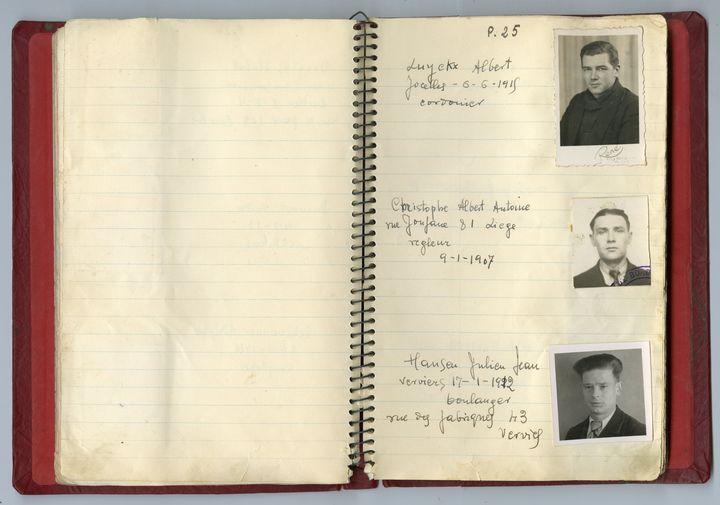 P. 25
Luyckx Albert
Jocelles - 6-6-1915
cordonier
René
Christophe Albert Antoine
rue Jonfane 81 Liege
regleur
9-1-1907
Hansen Julien Jean
Verviers 17-1-1922
boulanger
rue des fabriques 43
Vervies